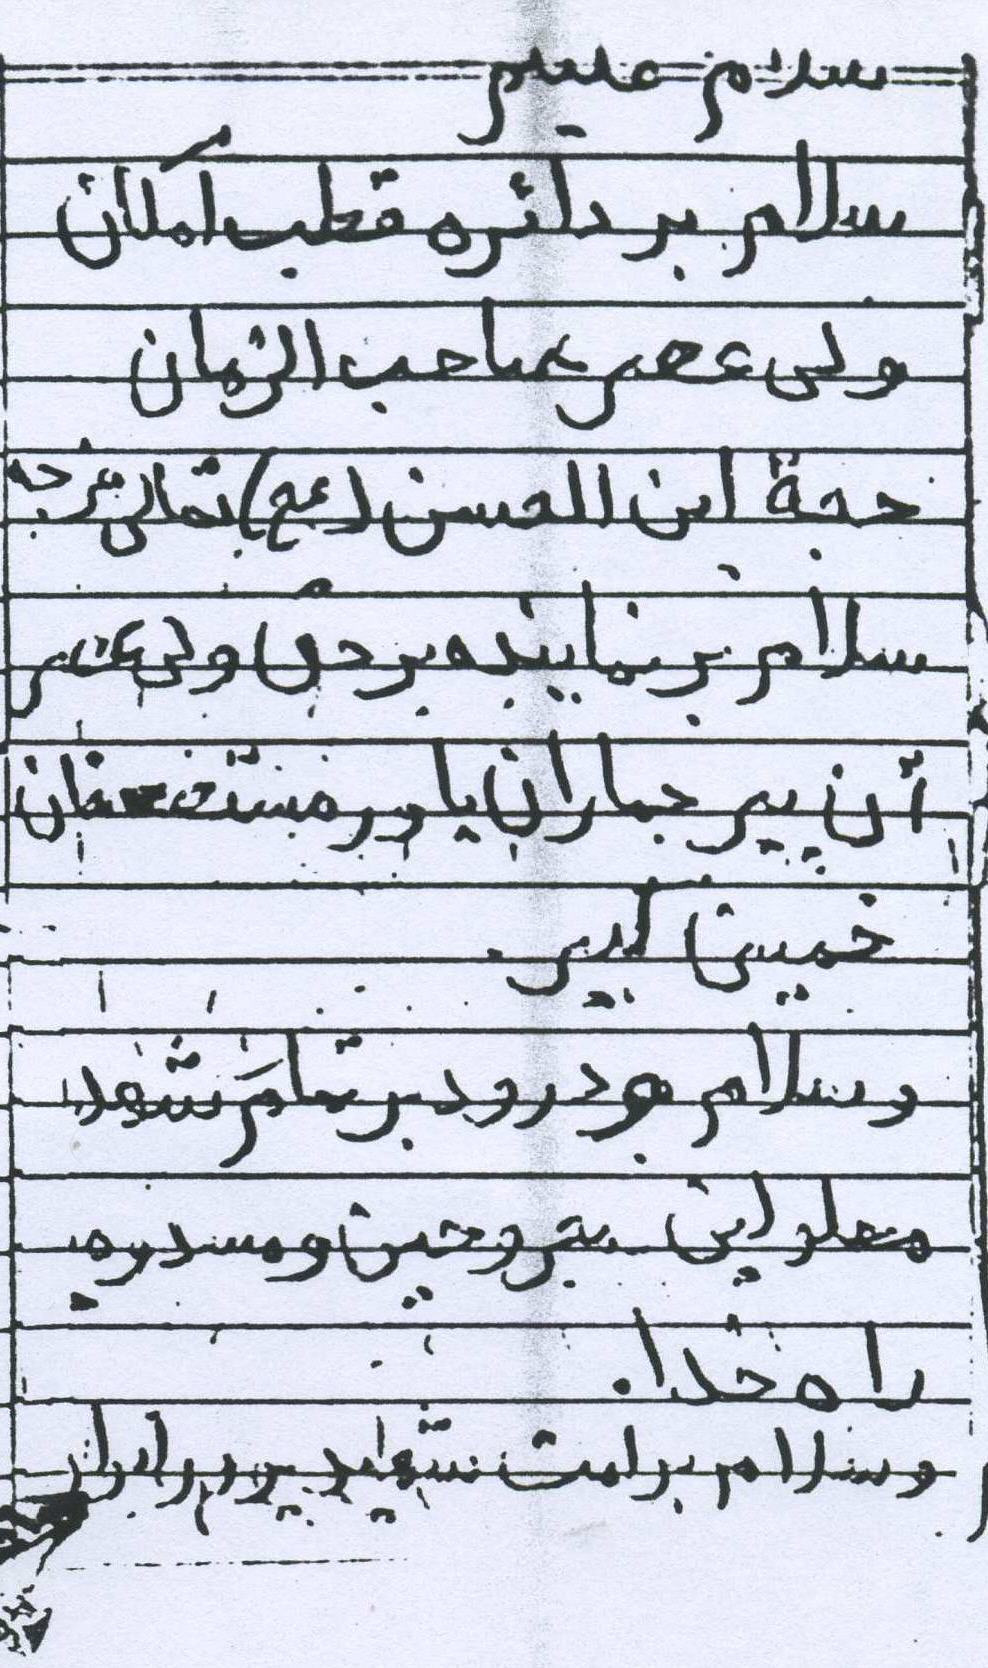 سلام علیکم
سلام بر دائره قطب امکان
ولی عصر صاحب الزمان
حجة ابن الحسن (عج) تعالی فرجه
سلام بر نماینده بر حق ولی عصر
آن پیر جماران یاور مستضعفان
خمینی کبیر.
وسلام و درود بر تمام شهدا
معلولین مجروحین و
راه خدا.
وسلام بر امت شهید پرور ایران